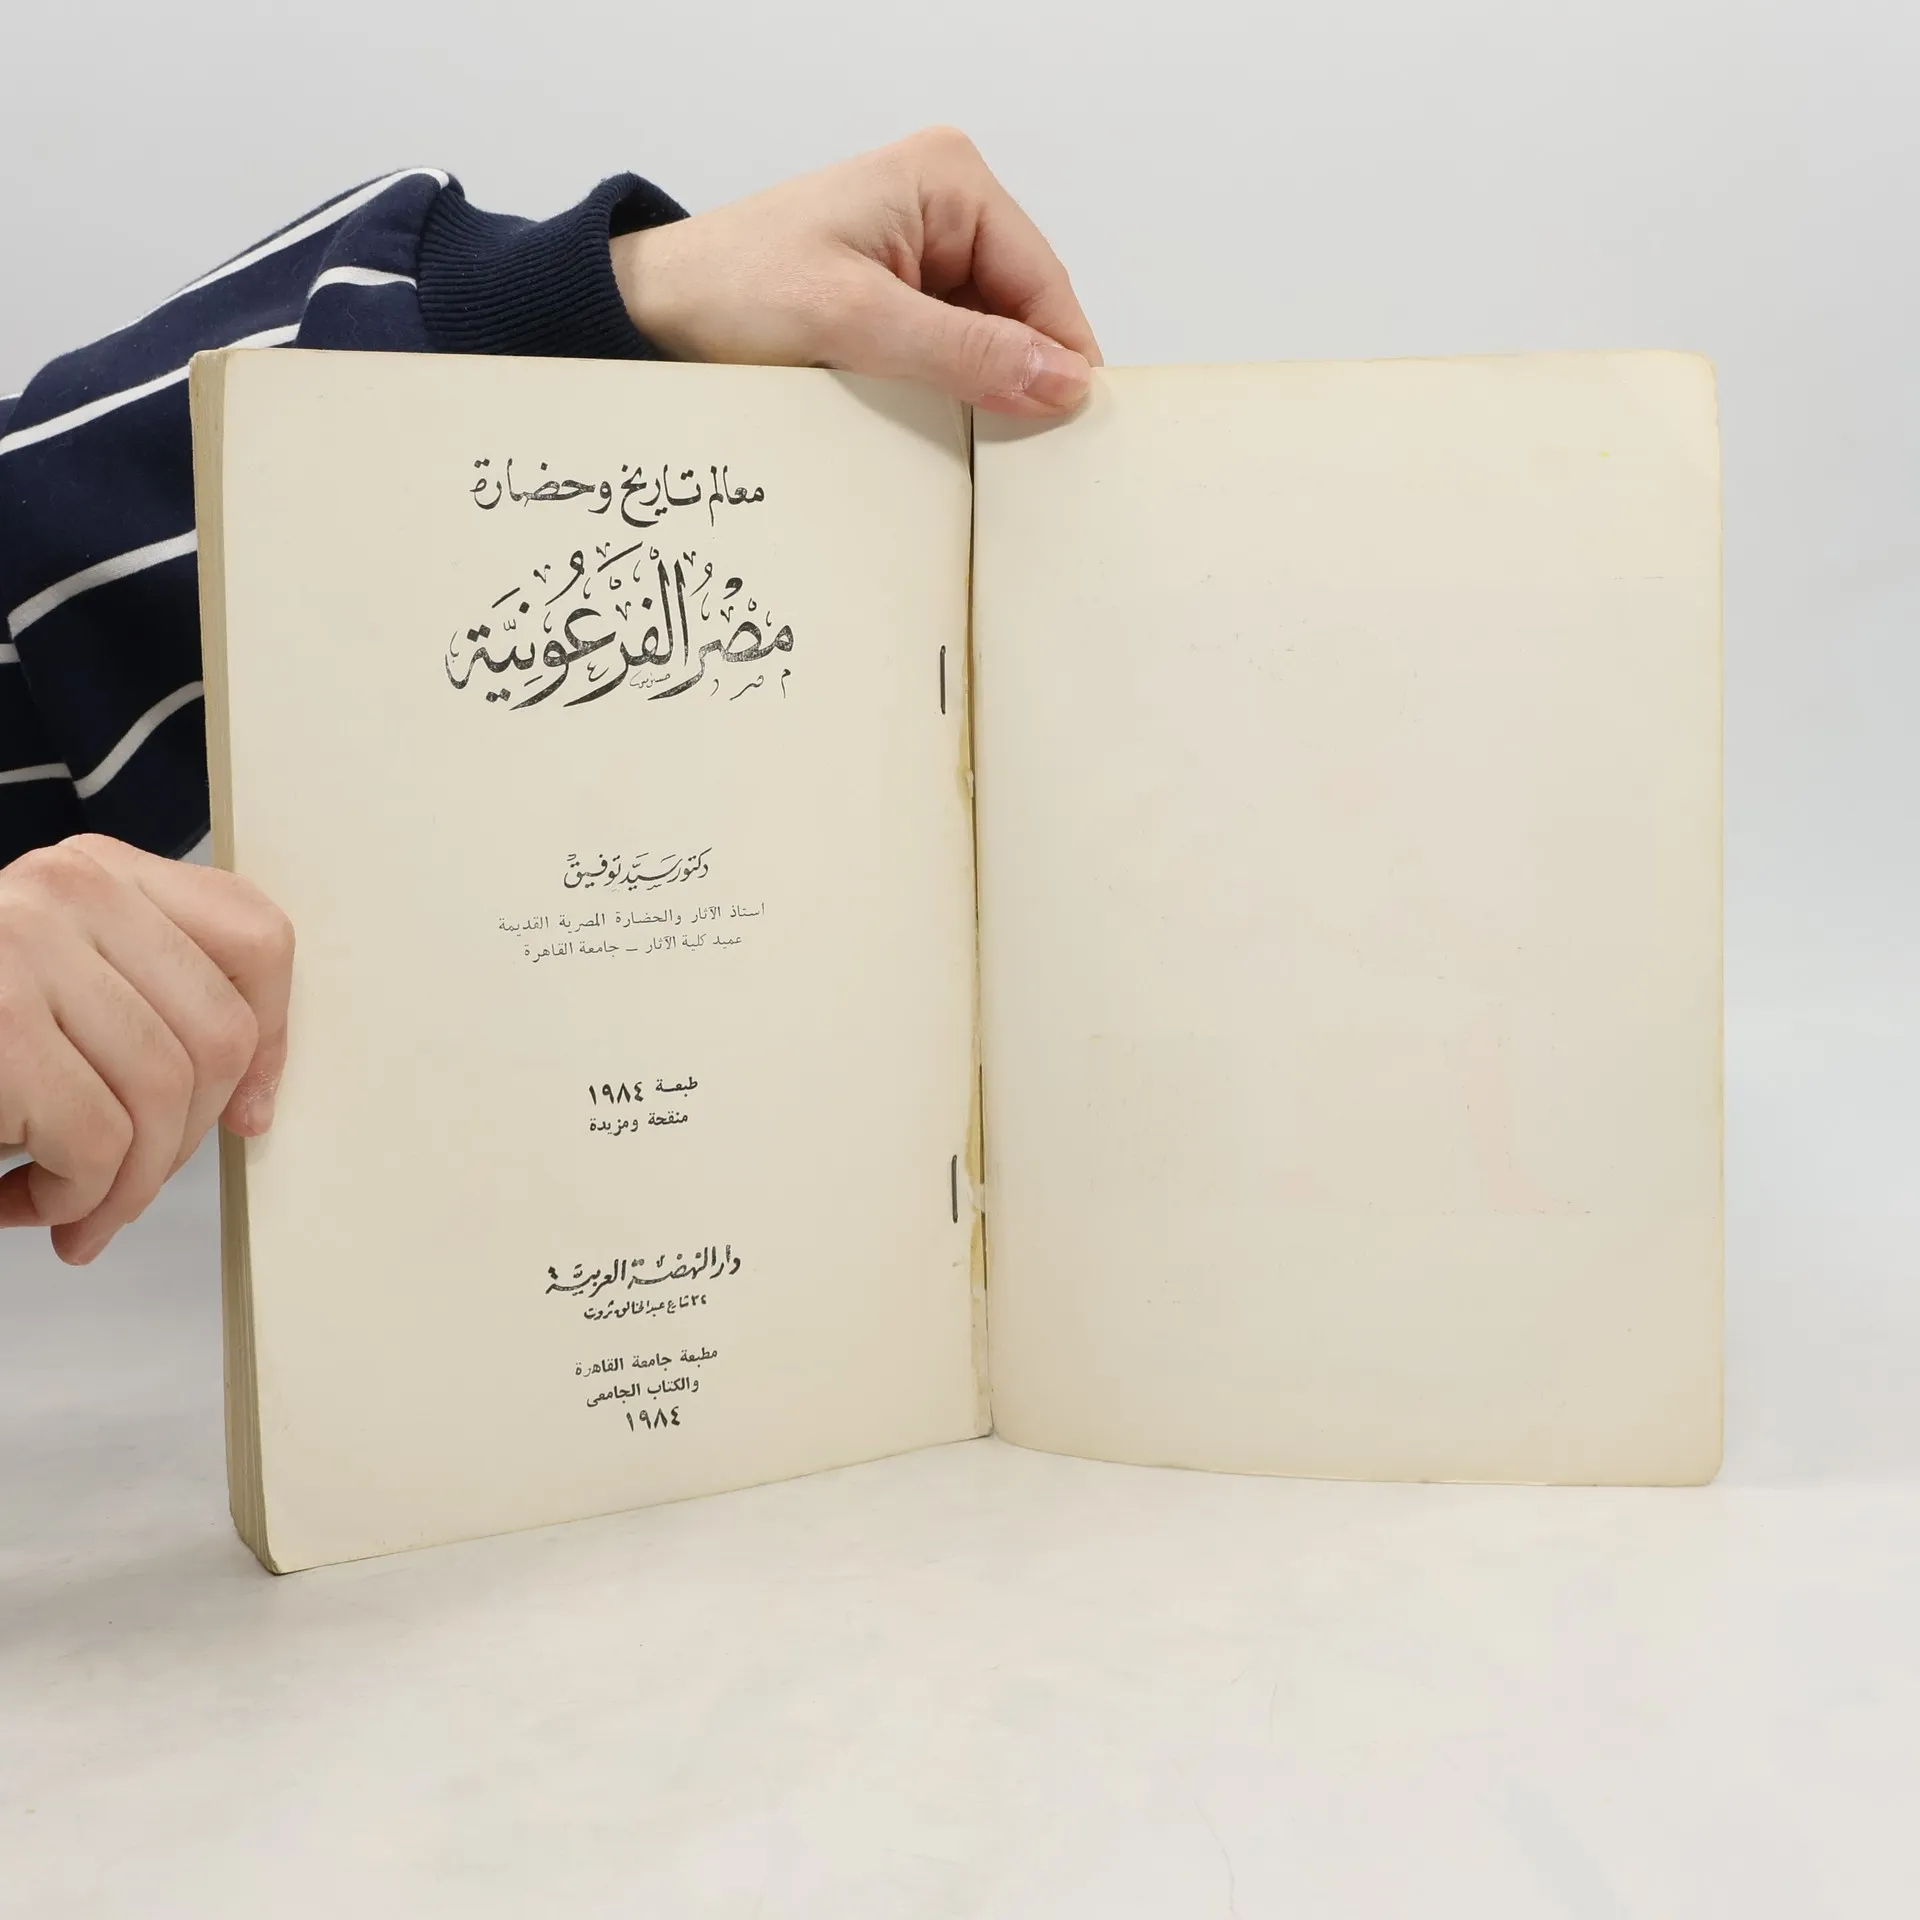 معالم تاريخ وحضارة
مصْرُ الْفَرْعَوُنِيَّة
دكتور سَيَّد توفيق
استاذ الآثار والحضارة المصرية القديمة
عميد كلية الآثار — جامعة القاهرة
طبعة ١٩٨٤
منقحة ومزيدة
دار النهضة العربية
٣٤ شارع عبد الخالق ثروت
مطبعة جامعة القاهرة
والكتاب الجامعى
١٩٨٤